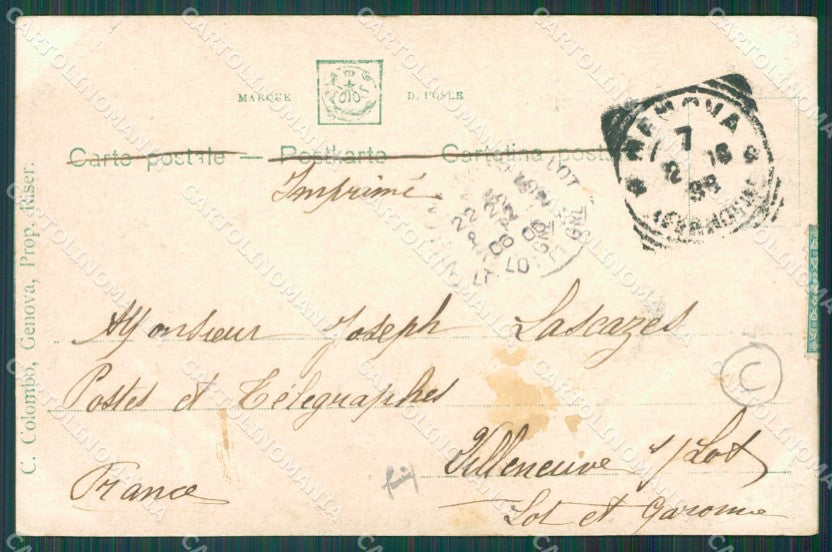 MARQUE D. POSLE
Carte postale — Postkarte — Cartolina post
Imprimé
GENOVA
7
Monsieur Joseph Lascazes
Postes et Télégraphes
Villeneuve s/Lot
France
Lot et Garonne
C. Colombo, Genova, Prop. Riser.
C
CARTOLINOMANIA